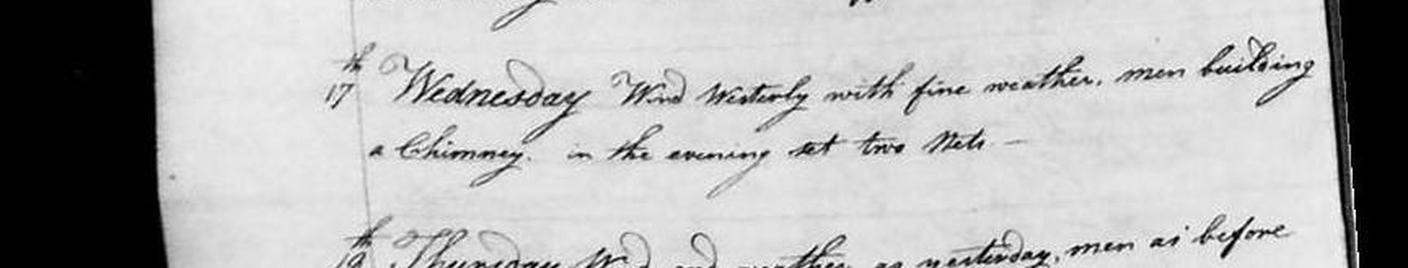 17th Wednesday Wind Westerly with fine weather. men building
a Chimney. in the evening set two Nets —
18th Thursday Wind and weather as yesterday, men as before